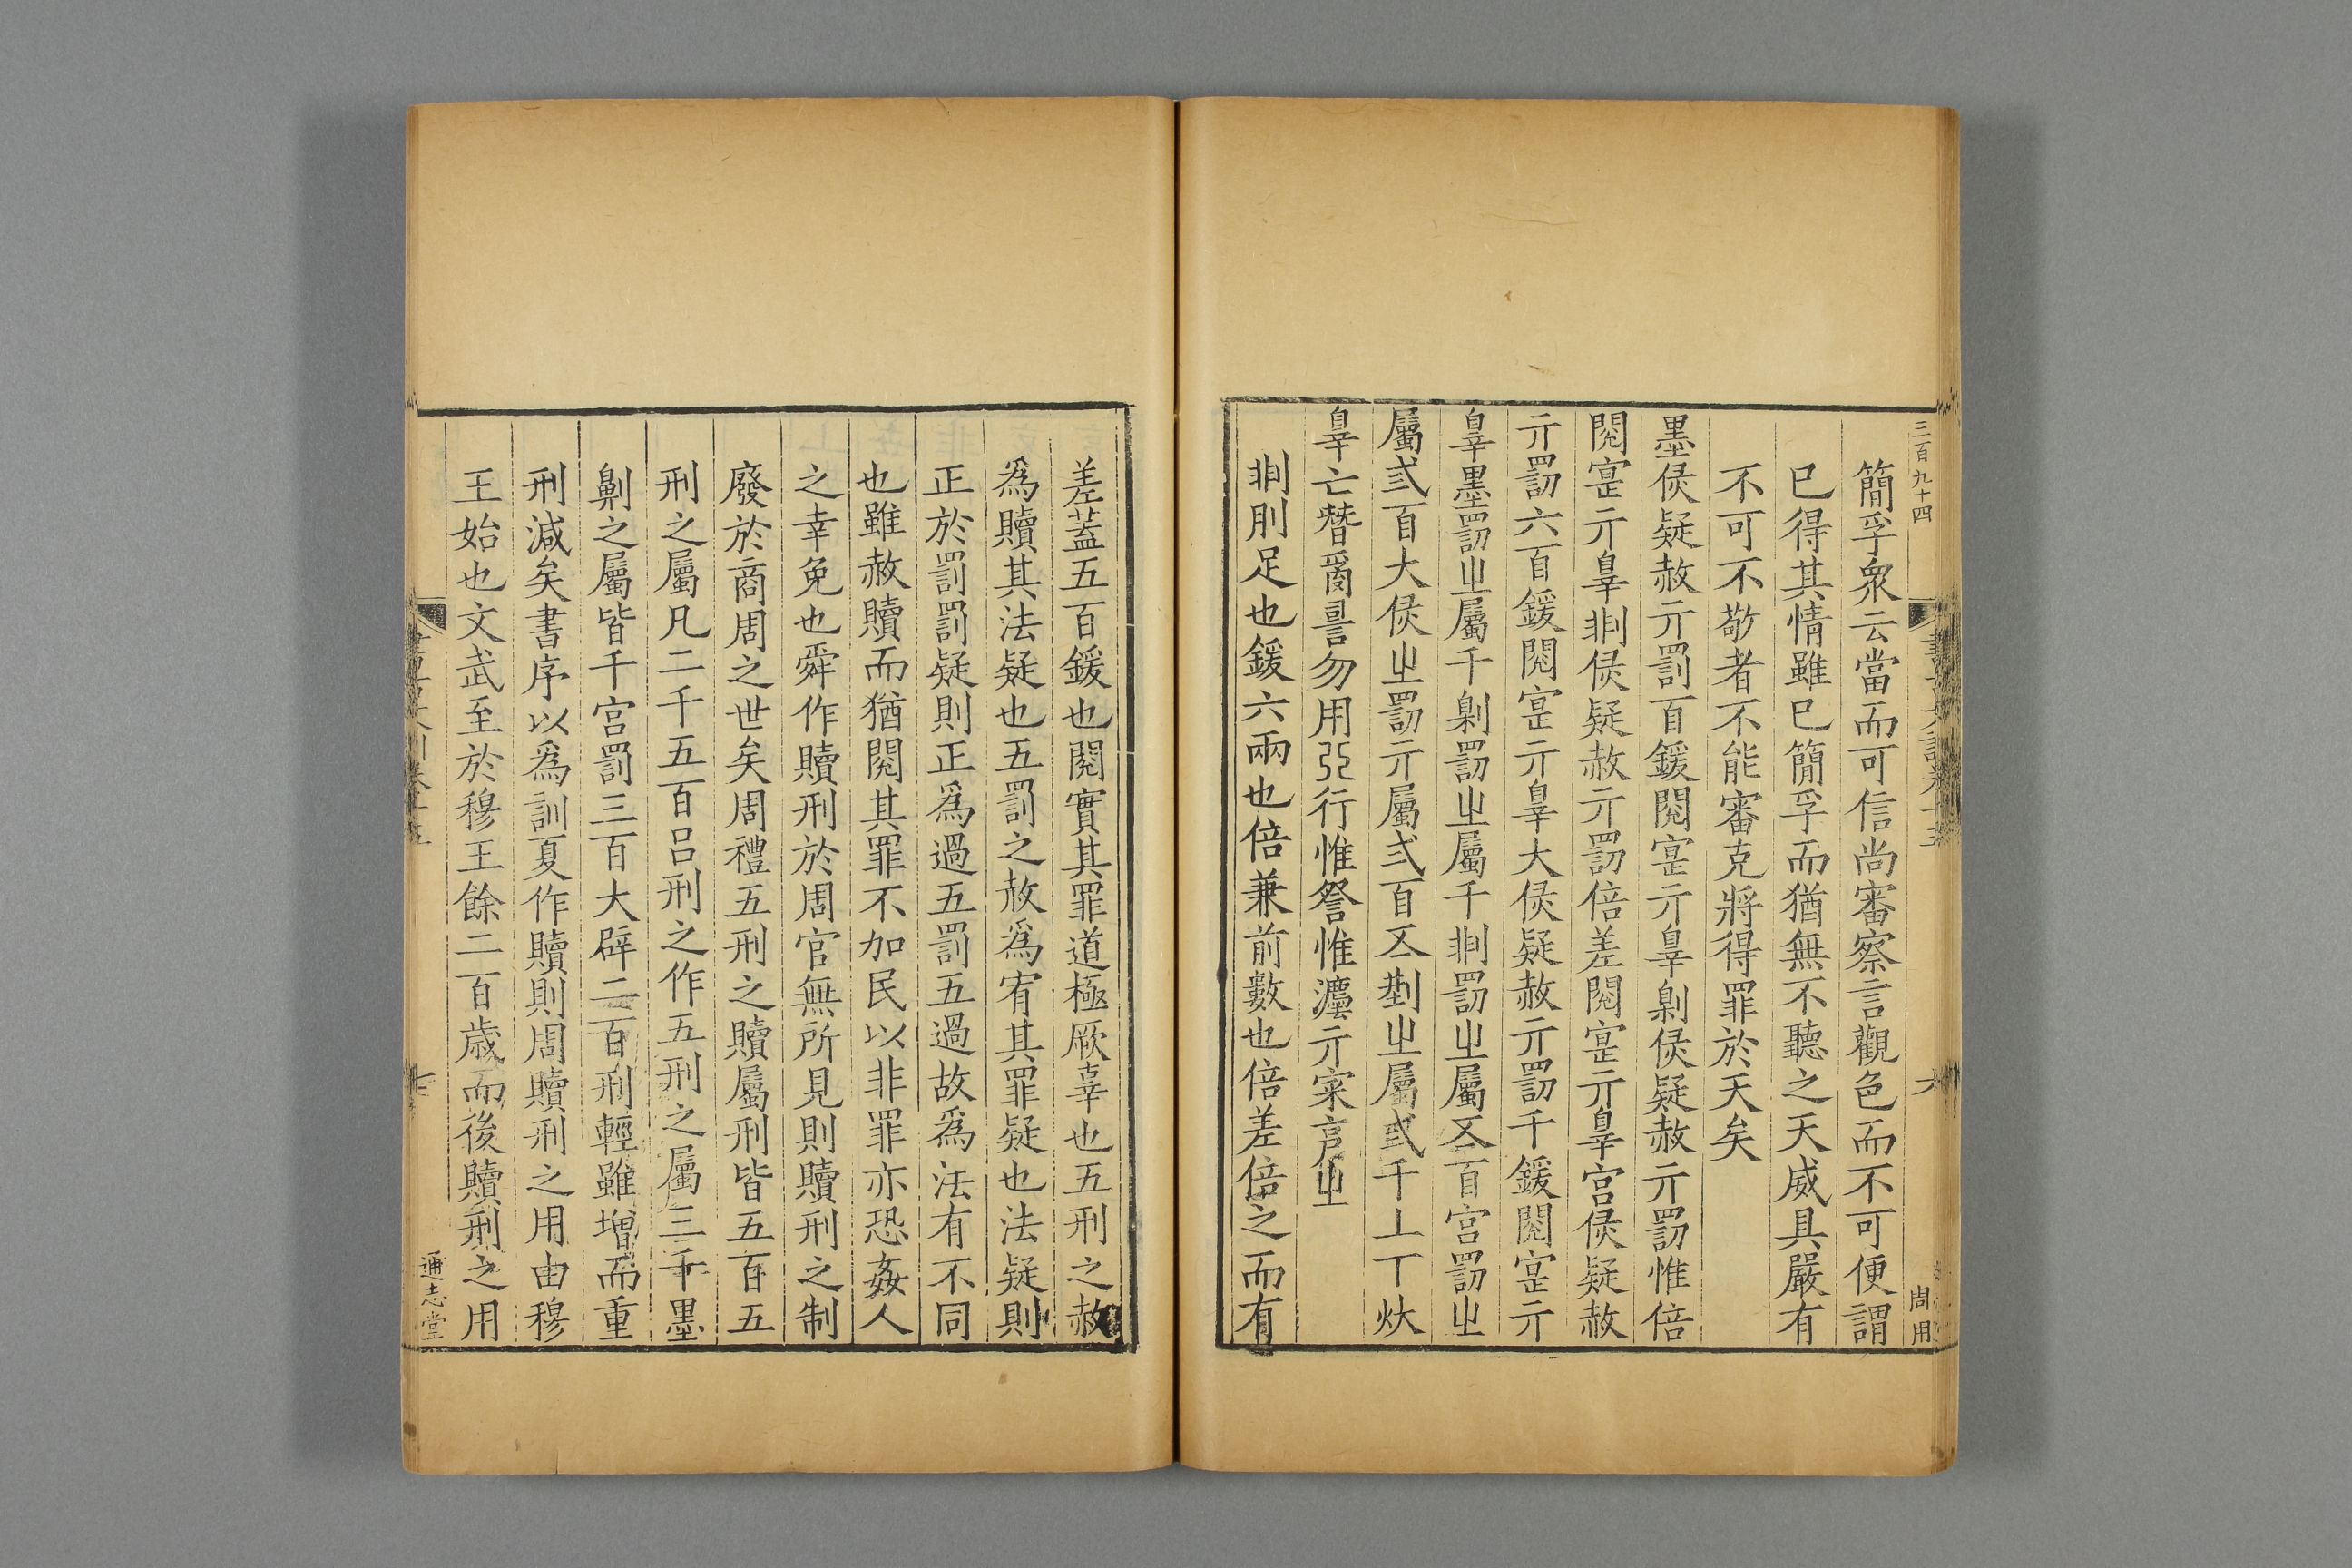 三百九十四
簡孚衆云當而可信尚審察言觀色而不可便謂
已得其情雖已簡孚而猶無不聽之天威具嚴有
不可不敬者不能審克將得罪於天矣
墨㑨疑赦亓罰百鍰閱寔亓辠劓㑨疑赦亓罰惟倍
閱寔亓辠剕㑨疑赦亓罰倍差閱寔亓辠宫㑨疑赦
亓罰六百鍰閱寔亓辠大㑨疑赦亓罰千鍰閱寔亓
辠墨罰㞢屬千劓罰㞢屬千剕罰㞢屬𠄡百宫罰㞢
屬弎百大㑨㞢罰亓屬弎百𠄡㓝㞢屬弎千丄丅㶬
辠亡朁𤔲勿用行惟詧惟灋亓㝩㞢
剕刖足也鍰六兩也倍兼前數也倍差倍之而有
六
周用
差蓋五百鍰也閱實其罪道極厥辜也五刑之赦
爲贖其法疑也五罰之赦爲宥其罪疑也法疑則
正於罰罰疑則正爲過五罰五過故爲法有不同
也雖赦贖而猶閱其罪不加民以非罪亦恐姦人
之幸免也舜作贖刑於周官無所見則贖刑之制
廢於商周之世矣周禮五刑之贖屬刑皆五百五
刑之屬凡二千五百吕刑之作五刑之屬三千墨
劓之屬皆千宫罰三百大辟二百刑輕雖增而重
刑減矣書序以爲訓夏作贖則周贖刑之用由穆
王始也文武至於穆王餘二百歲而後贖刑之用
通志堂